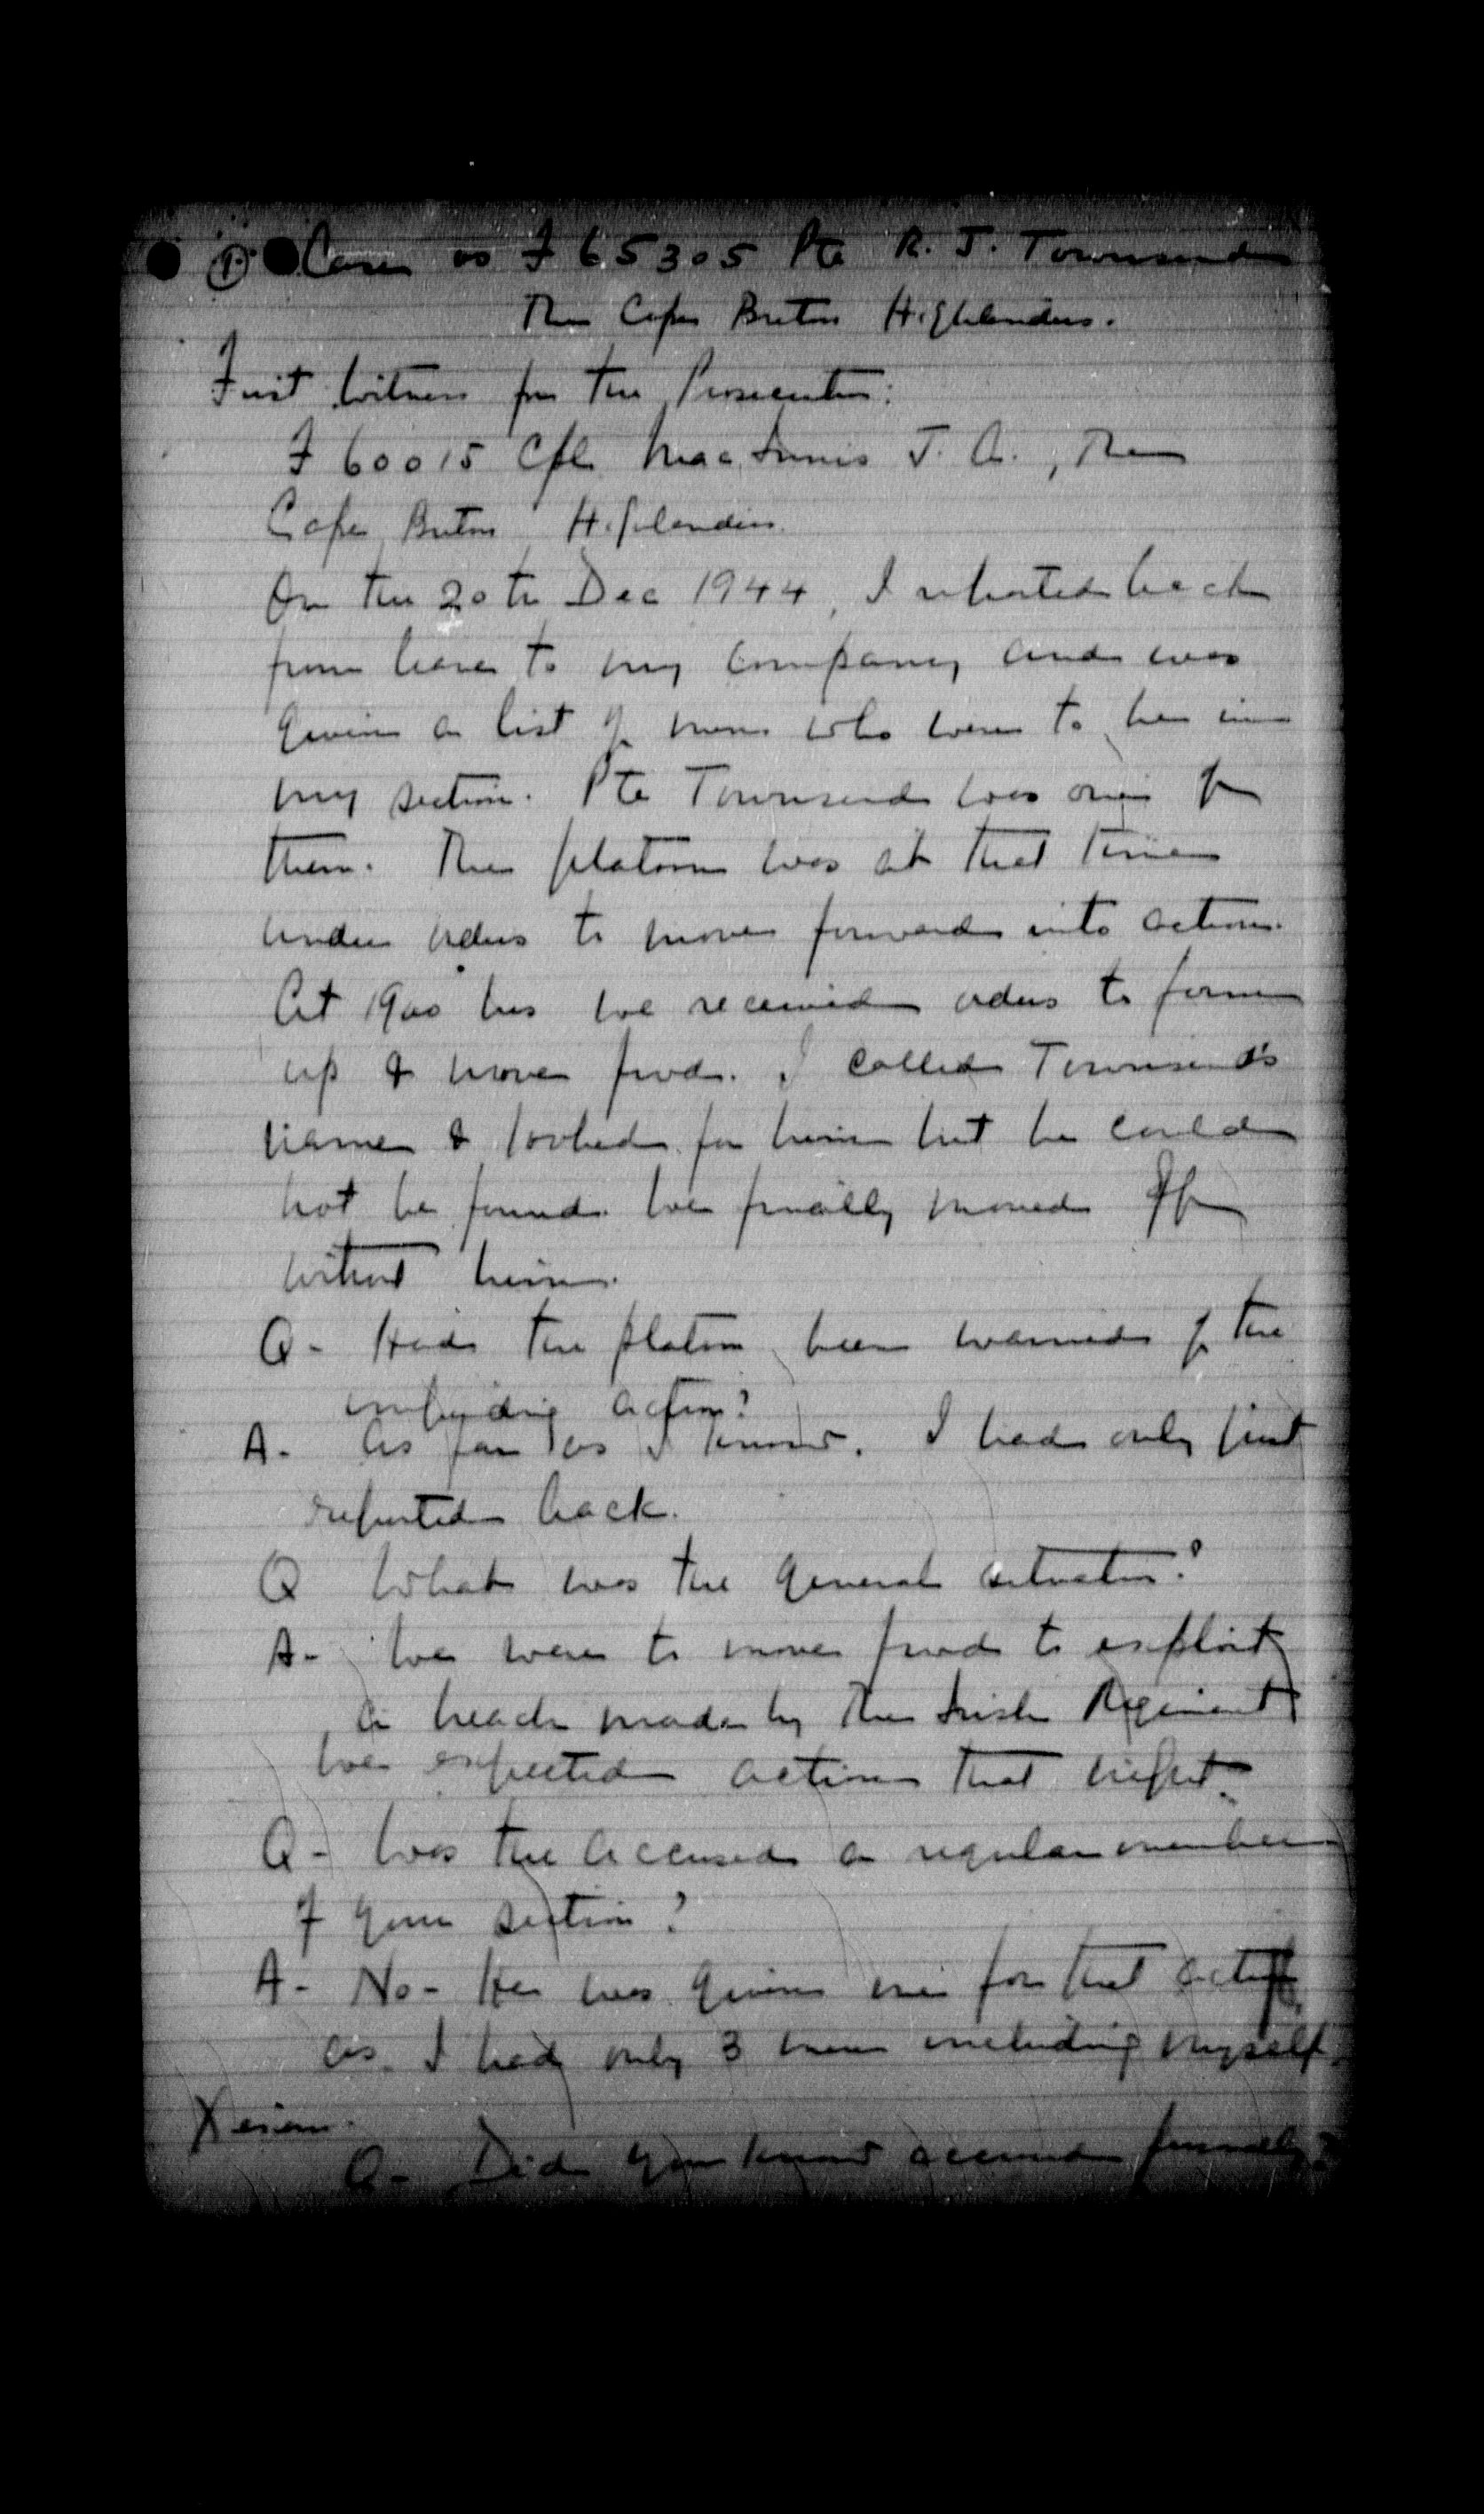 (1) Case vs F 65305 Pte R. J. Townsend
The Cape Breton Highlanders.
First Witness for the Prosecution:
F 60015 Cpl MacInnis J. A., The
Cape Breton Highlanders.
On the 20th Dec 1944, I reported back
from leave to my company and was
given a list of men who were to be in
my section. Pte Townsend was one of
them. The platoon was at that time
under orders to move forward into action.
At 1900 hrs we received orders to form
up & move fwd. I called Townsend's
name & looked for him but he could
not be found. We finally moved off
without him.
Q - Had the platoon been warned of the
impending action?
A - As far as I know. I had only just
reported back.
Q What was the general situation?
A - We were to move fwd to exploit
a breach made by The Irish Regiment
We expected action that night.
Q - Was the accused a regular member
of your section?
A - No - He was given me for that action,
as I had only 3 men including myself.
X exam.
Q - Did you know accused formerly?